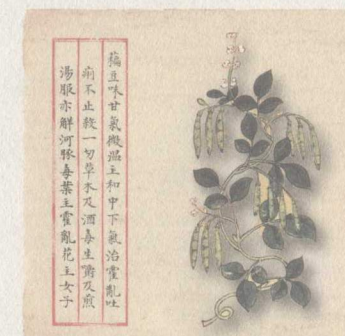 藊豆味甘氣微溫主和中下氣治霍亂吐
痢不止殺一切草木及酒毒生嚼及煎
湯服亦解河豚毒葉主霍亂花主女子